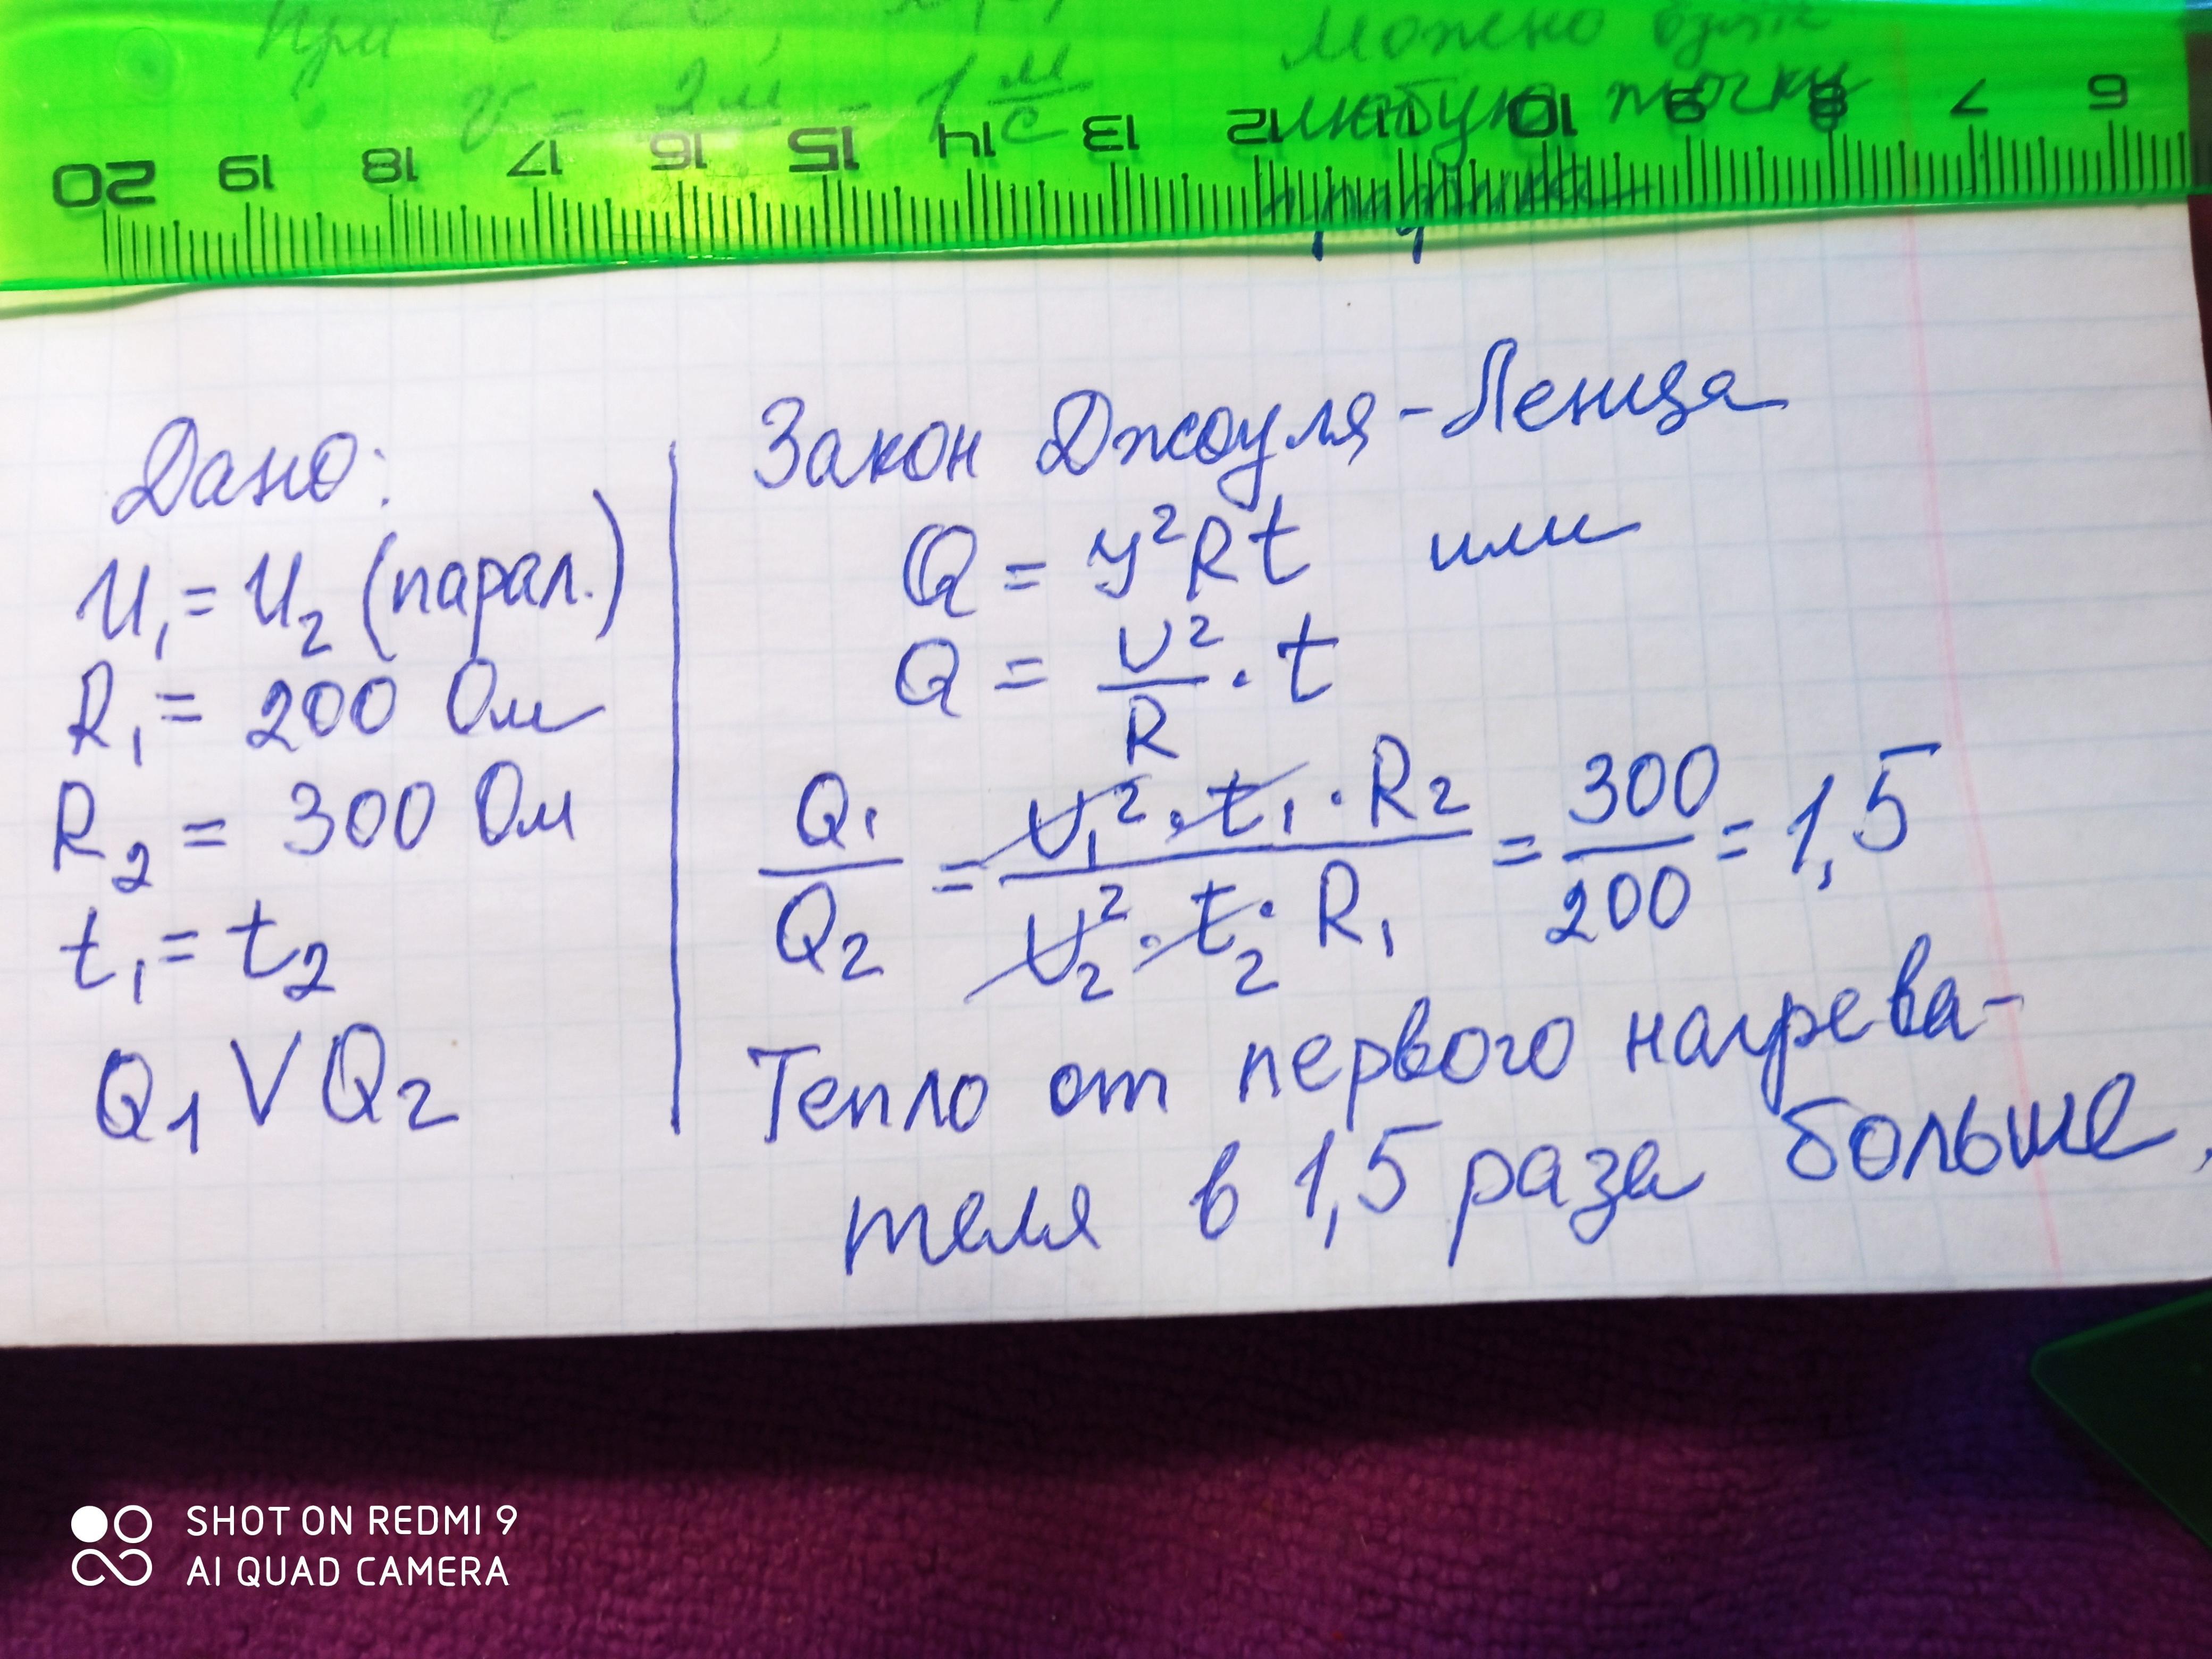 При
v = 2м = 1 м/с
Можно взять
любую точку
графика
20 19 18 17 16 15 14 13 12 11 10 9 8 7 6
Дано:
U₁ = U₂ (парал.)
R₁ = 200 Ом
R₂ = 300 Ом
t₁ = t₂
Q₁ V Q₂
Закон Джоуля-Ленца
Q = y²Rt или
Q = U²/R · t
Q₁/Q₂ = U₁² · t₁ · R₂ / U₂² · t₂ · R₁ = 300/200 = 1,5
Тепло от первого нагрева-
теля в 1,5 раза больше,
SHOT ON REDMI 9
AI QUAD CAMERA